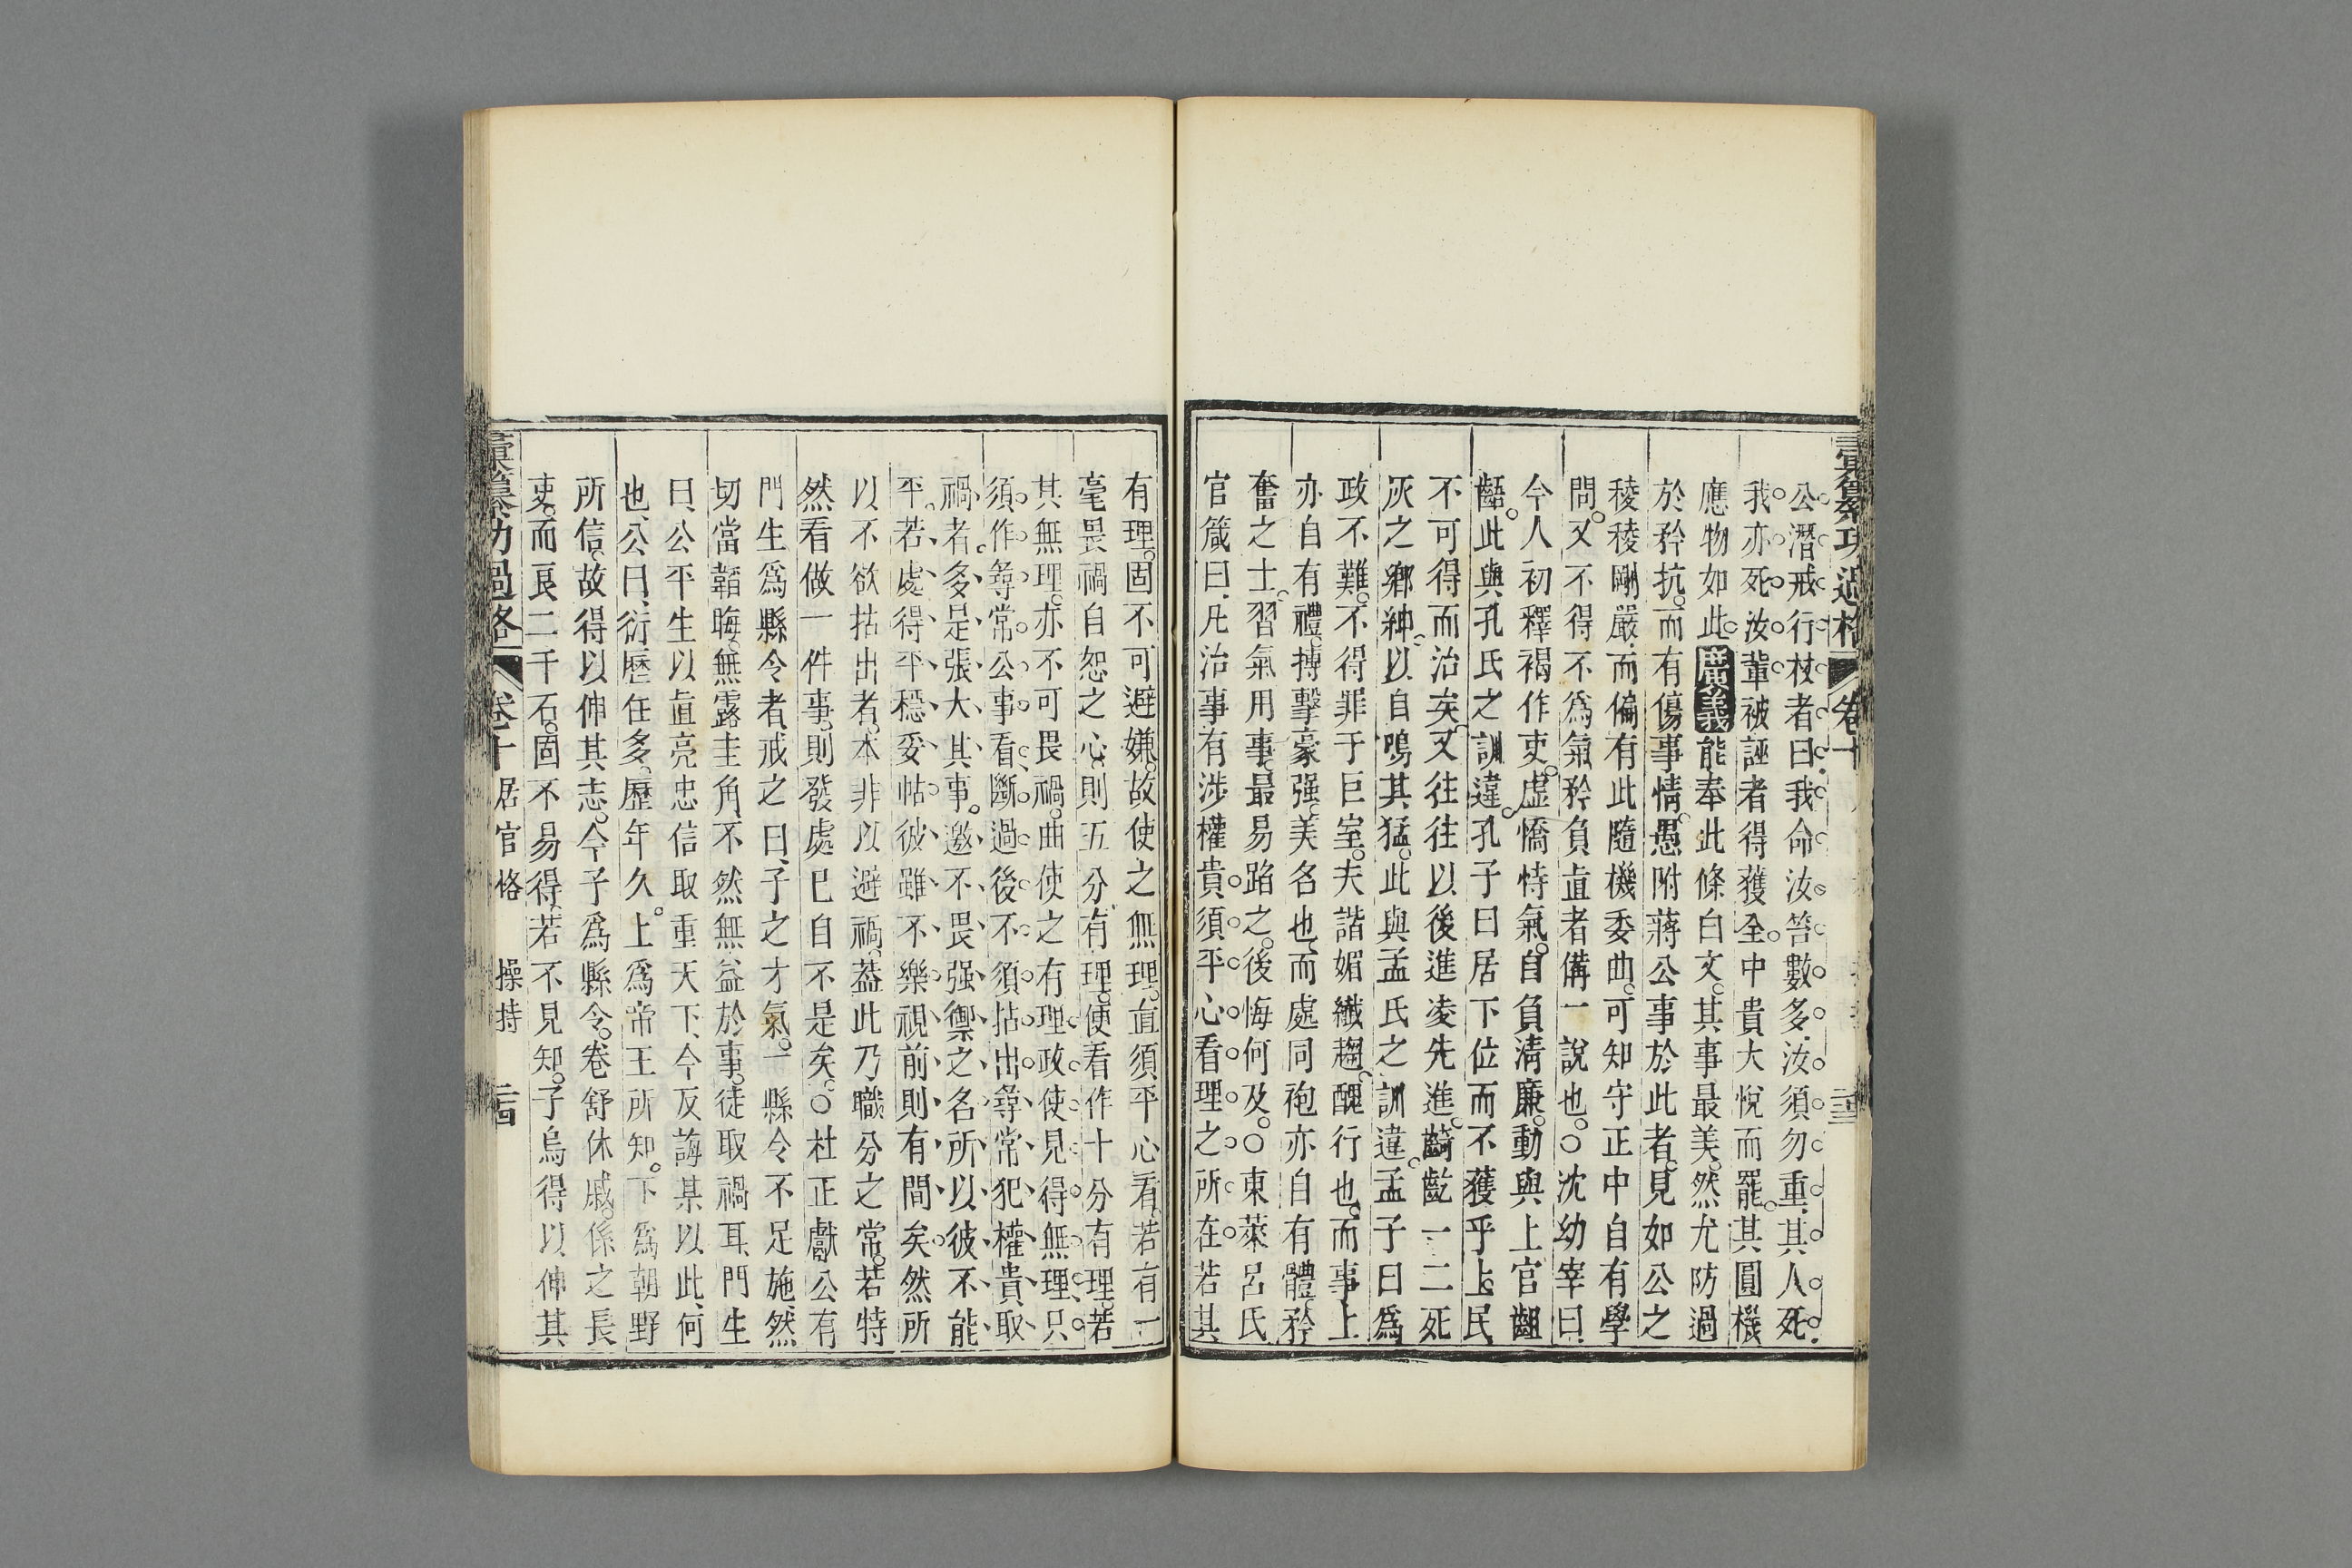 彙纂功過格 卷十
公潛戒行杖者曰我命汝笞數多汝須勿重其人死
我亦死汝輩被誣者得獲全中貴大悅而罷其圓機
應物如此廣義能奉此條白文其事最美然尤防過
於矜抗而有傷事情愚附蔣公事於此者見如公之
稜稜剛嚴而偏有此隨機委曲可知守正中自有學
問又不得不爲氣矜負直者備一說也○沈幼宰曰
今人初釋褐作吏虛憍恃氣自負清廉動與上官齟
齬此與孔氏之訓違孔子曰居下位而不獲乎上民
不可得而治矣又往往以後進凌先進齮齕一二死
灰之鄉紳以自鳴其猛此與孟氏之訓違孟子曰爲
政不難不得罪于巨室夫諧媚纖趨醜行也而事上
亦自有禮搏擊豪强美名也而處同袍亦自有體矜
奮之士習氣用事最易蹈之後悔何及○東萊呂氏
官箴曰凡治事有涉權貴須平心看理之所在若其
有理固不可避嫌故使之無理直須平心看若有一
毫畏禍自恕之心則五分有理便看作十分有理若
其無理亦不可畏禍曲使之有理政使見得無理只
須作尋常公事看斷過後不須拈出尋常犯權貴取
禍者多是張大其事邀不畏强禦之名所以彼不能
平若處得平穩妥帖彼雖不樂視前則有間矣然所
以不欲拈出者本非以避禍葢此乃職分之常若特
然看做一件事則發處已自不是矣○杜正獻公有
門生爲縣令者戒之曰子之才氣一縣令不足施然
切當韜晦無露圭角不然無益於事徒取禍耳門生
曰公平生以直亮忠信取重天下今反誨某以此何
也公曰衍歷任多歷年久上爲帝王所知下爲朝野
所信故得以伸其志今子爲縣令卷舒休戚係之長
吏而良二千石固不易得若不見知子烏得以伸其
彙纂功過格 卷十 居官格 操持 二十四